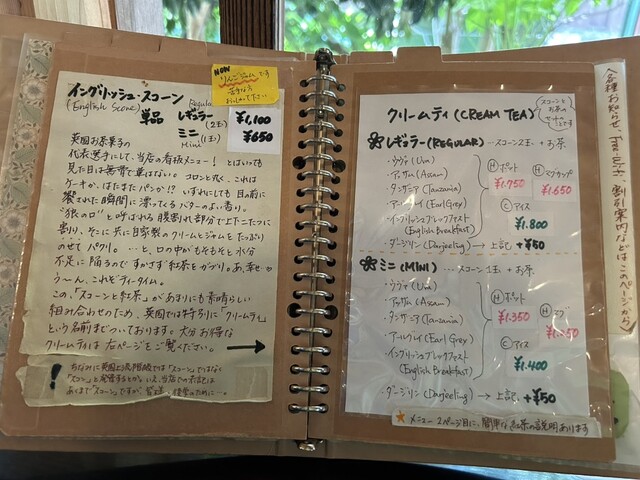 イングリッシュ・スコーン
(English Scone)
単品
Regular
レギュラー
(2玉)
¥1,100
ミニ
Mini
(1玉)
¥650
NOW
りんごジャムです
英国お茶菓子の
代表選手にして、当店の看板メニュー！とはいっても
見た目は無骨で華はない。コロンと丸く、これは
ケーキか、はたまたパンか！？いずれにしても目の前に
饗された瞬間に漂ってくるバターのよい香り。
"狼の口"と呼ばれる腹割れ部分で上下二つに
割り、そこに共に自家製のクリームとジャムをたっぷり
のせてパクリ。…と、口の中がもそもそと水分
不足に陥るのですかさず紅茶をガブリ。あ、幸せや
う〜ん、これぞティータイム。
この、"スコーンと紅茶"があまりにも素晴らしい
組み合わせのため、英国では特別に「クリームティ」
という名前までついております。大分お得な
クリームティは右ページをご覧ください。→
クリームティ(CREAM TEA)
スコーンと
お茶の
セットです
レギュラー(REGULAR) …スコーン2玉 + お茶
・ウヴァ(Uva)
・アッサム(Assam)
・タンザニア(Tanzania)
・アールグレイ(Earl Grey)
・イングリッシュブレックファスト
(English Breakfast)
Ⓗポット
¥1.750
Ⓗマグカップ
¥1.650
Ⓒアイス
¥1.800
・ダージリン(Darjeeling) → 上記 +¥50
ミニ(MINI) …スコーン1玉 + お茶
・ウヴァ(Uva)
・アッサム(Assam)
・タンザニア(Tanzania)
・アールグレイ(Earl Grey)
・イングリッシュブレックファスト
(English Breakfast)
Ⓗポット
¥1.350
Ⓗマグ
Ⓒアイス
¥1.400
・ダージリン(Darjeeling) → 上記 +¥50
メニュー2ページ目に、簡単な紅茶の説明あります